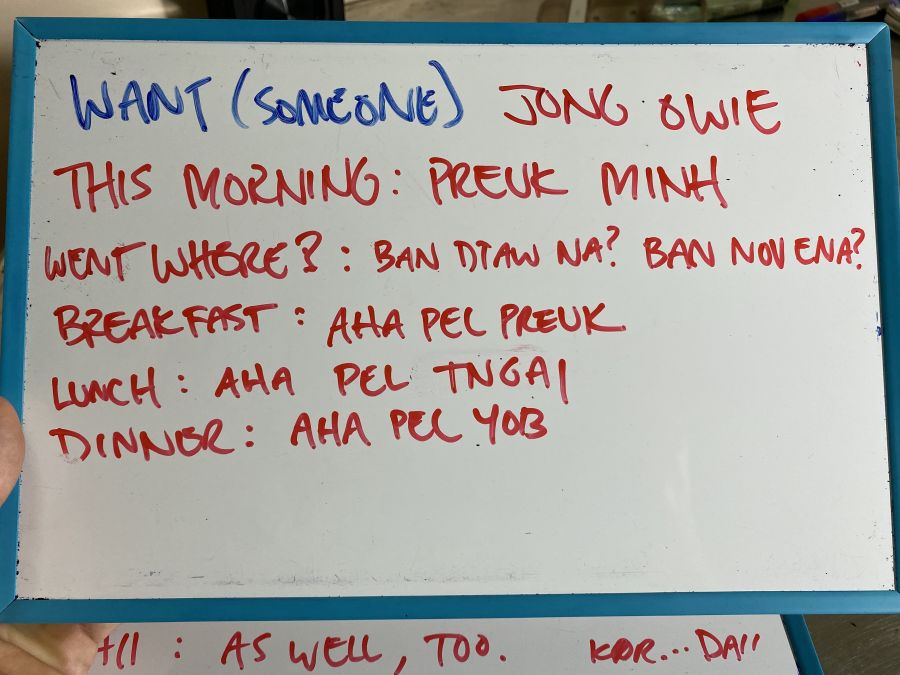 WANT (SOMEONE) JONG OWIE
THIS MORNING: PREUK MINH
WENT WHERE? : BAN DTAW NA? BAN NOV ENA?
BREAKFAST : AHA PEL PREUK
LUNCH : AHA PEL TNGAI
DINNER : AHA PEL YOB
: AS WELL, TOO. KOR... DAII